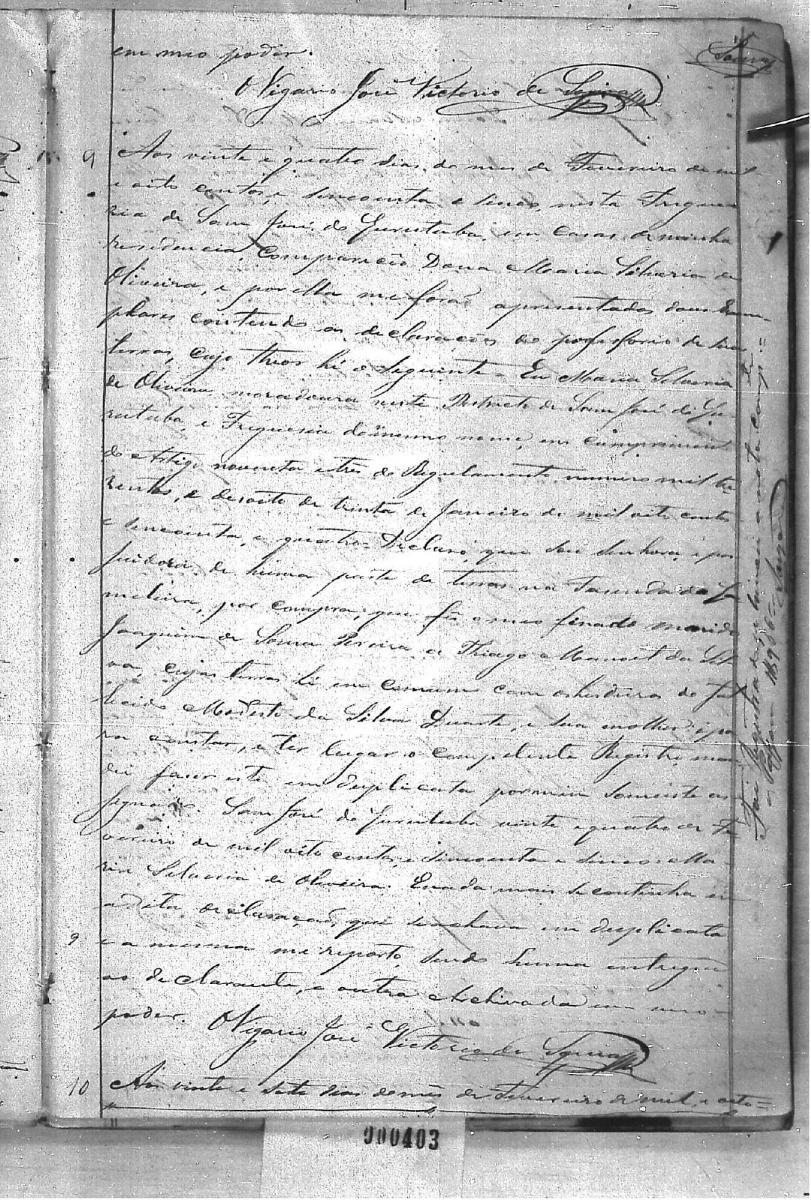 em meo poder.
Souza
O Vigario José Victorio de Souza
9 Aos vinte e quatro dias do mes de Fevereiro de mil
e oito centos, e sincoenta e sinco, nesta Fregue
zia de Sam José do Gurutuba, em casas de minha
residencia, compareceo Dona Maria Silvaria de
Oliveira, e por ella me foraõ apresentados dous exem
plares contendo as declaraçoẽs do possessorio de suas
terras, cujo theor hé o seguinte = Eu Maria Silvaria
de Oliveira moradoura neste Destricto de Sam José do Gu
rutuba, e Freguesia do mesmo nome, em cumprimento
do Artigo noventa e tres do Regulamento numero mil tre
zentos, e desoito de trinta de Janeiro de mil oito centos
e sincoenta, e quatro = Declaro, que sou senhora, e pos
suidora de huma parte de terras na Fasenda da Ga
meleira, por compra, que fes o meo finado marido
Joaquim de Souza Pereira a Thiago Manoel da Sil
va, cujas terras hé em comum com os herdeiros do fal
lecido Modesto da Silva Duarte, e sua molher, e pa
ra constar, e ter lugar o competente Registro man
dei faser este em duplicata por mim somente as
signado. Sam José do Gurutuba vinte e quatro de Fe
vereiro de mil oito centos, e sincoenta e sinco = Ma
ria Silvaria de Oliveira. E nada mais se continha em
a dita declaraçaõ, que se achava em duplicata
9 e a mesma me reporto, sendo huma entregue
ao declarante, e outra archivada em meo
poder. O Vigario José Victorio de Souza
10 Aos vinte e sete dias do mês de Fevereiro de mil, e oito =
Foi Registrada
Souza
000403